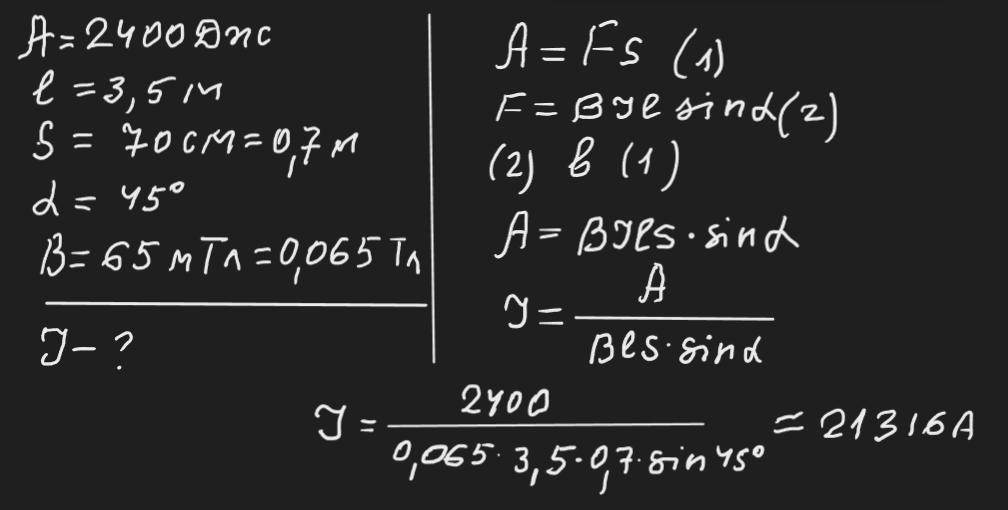 A = 2400 Дж
l = 3,5 м
S = 70 см = 0,7 м
α = 45°
B = 65 мТл = 0,065 Тл
I – ?
A = Fs (1)
F = BIl sinα (2)
(2) в (1)
A = BIls · sinα
I = A / Bls · sinα
I = 2400 / 0,065 · 3,5 · 0,7 · sin 45° ≈ 21316 A